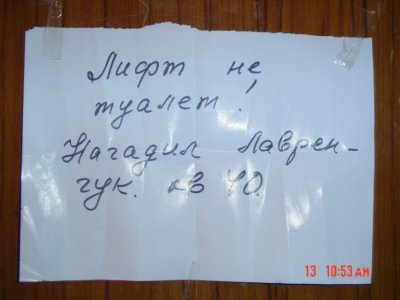 Лифт не
туалет!
Нагадил Лаврен-
чук. кв 40.
13 10:53 AM